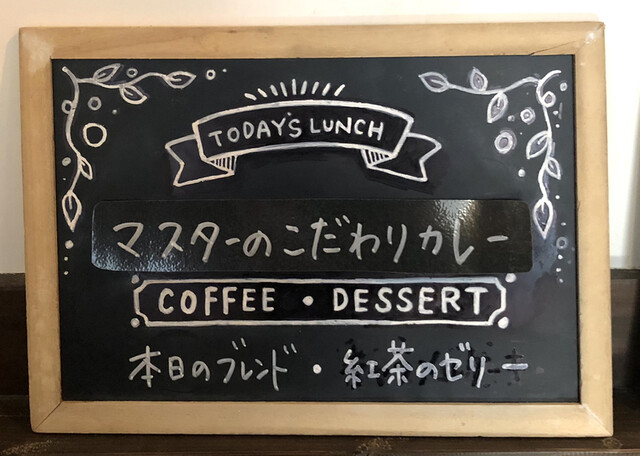 TODAY'S LUNCH
マスターのこだわりカレー
COFFEE・DESSERT
本日のブレンド・紅茶のゼリー